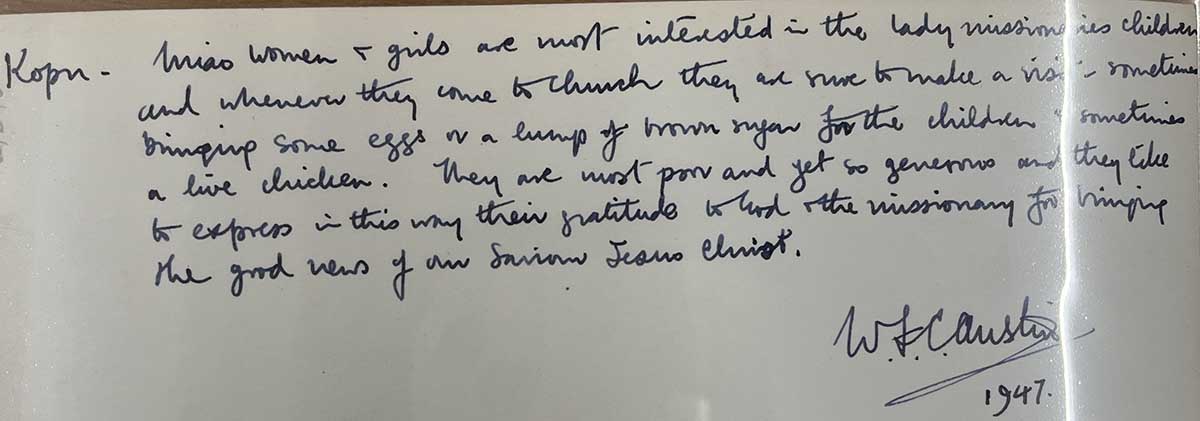 Kopu - Miao women & girls are most interested in the lady missionaries children
and whenever they come to church they are sure to make a visit - sometimes
bringing some eggs or a lump of brown sugar for the children & sometimes
a live chicken. They are most poor and yet so generous and they like
to express in this way their gratitude to God & the missionary for bringing
the good news of our Saviour Jesus Christ.
W.F.C. Austin
1947.